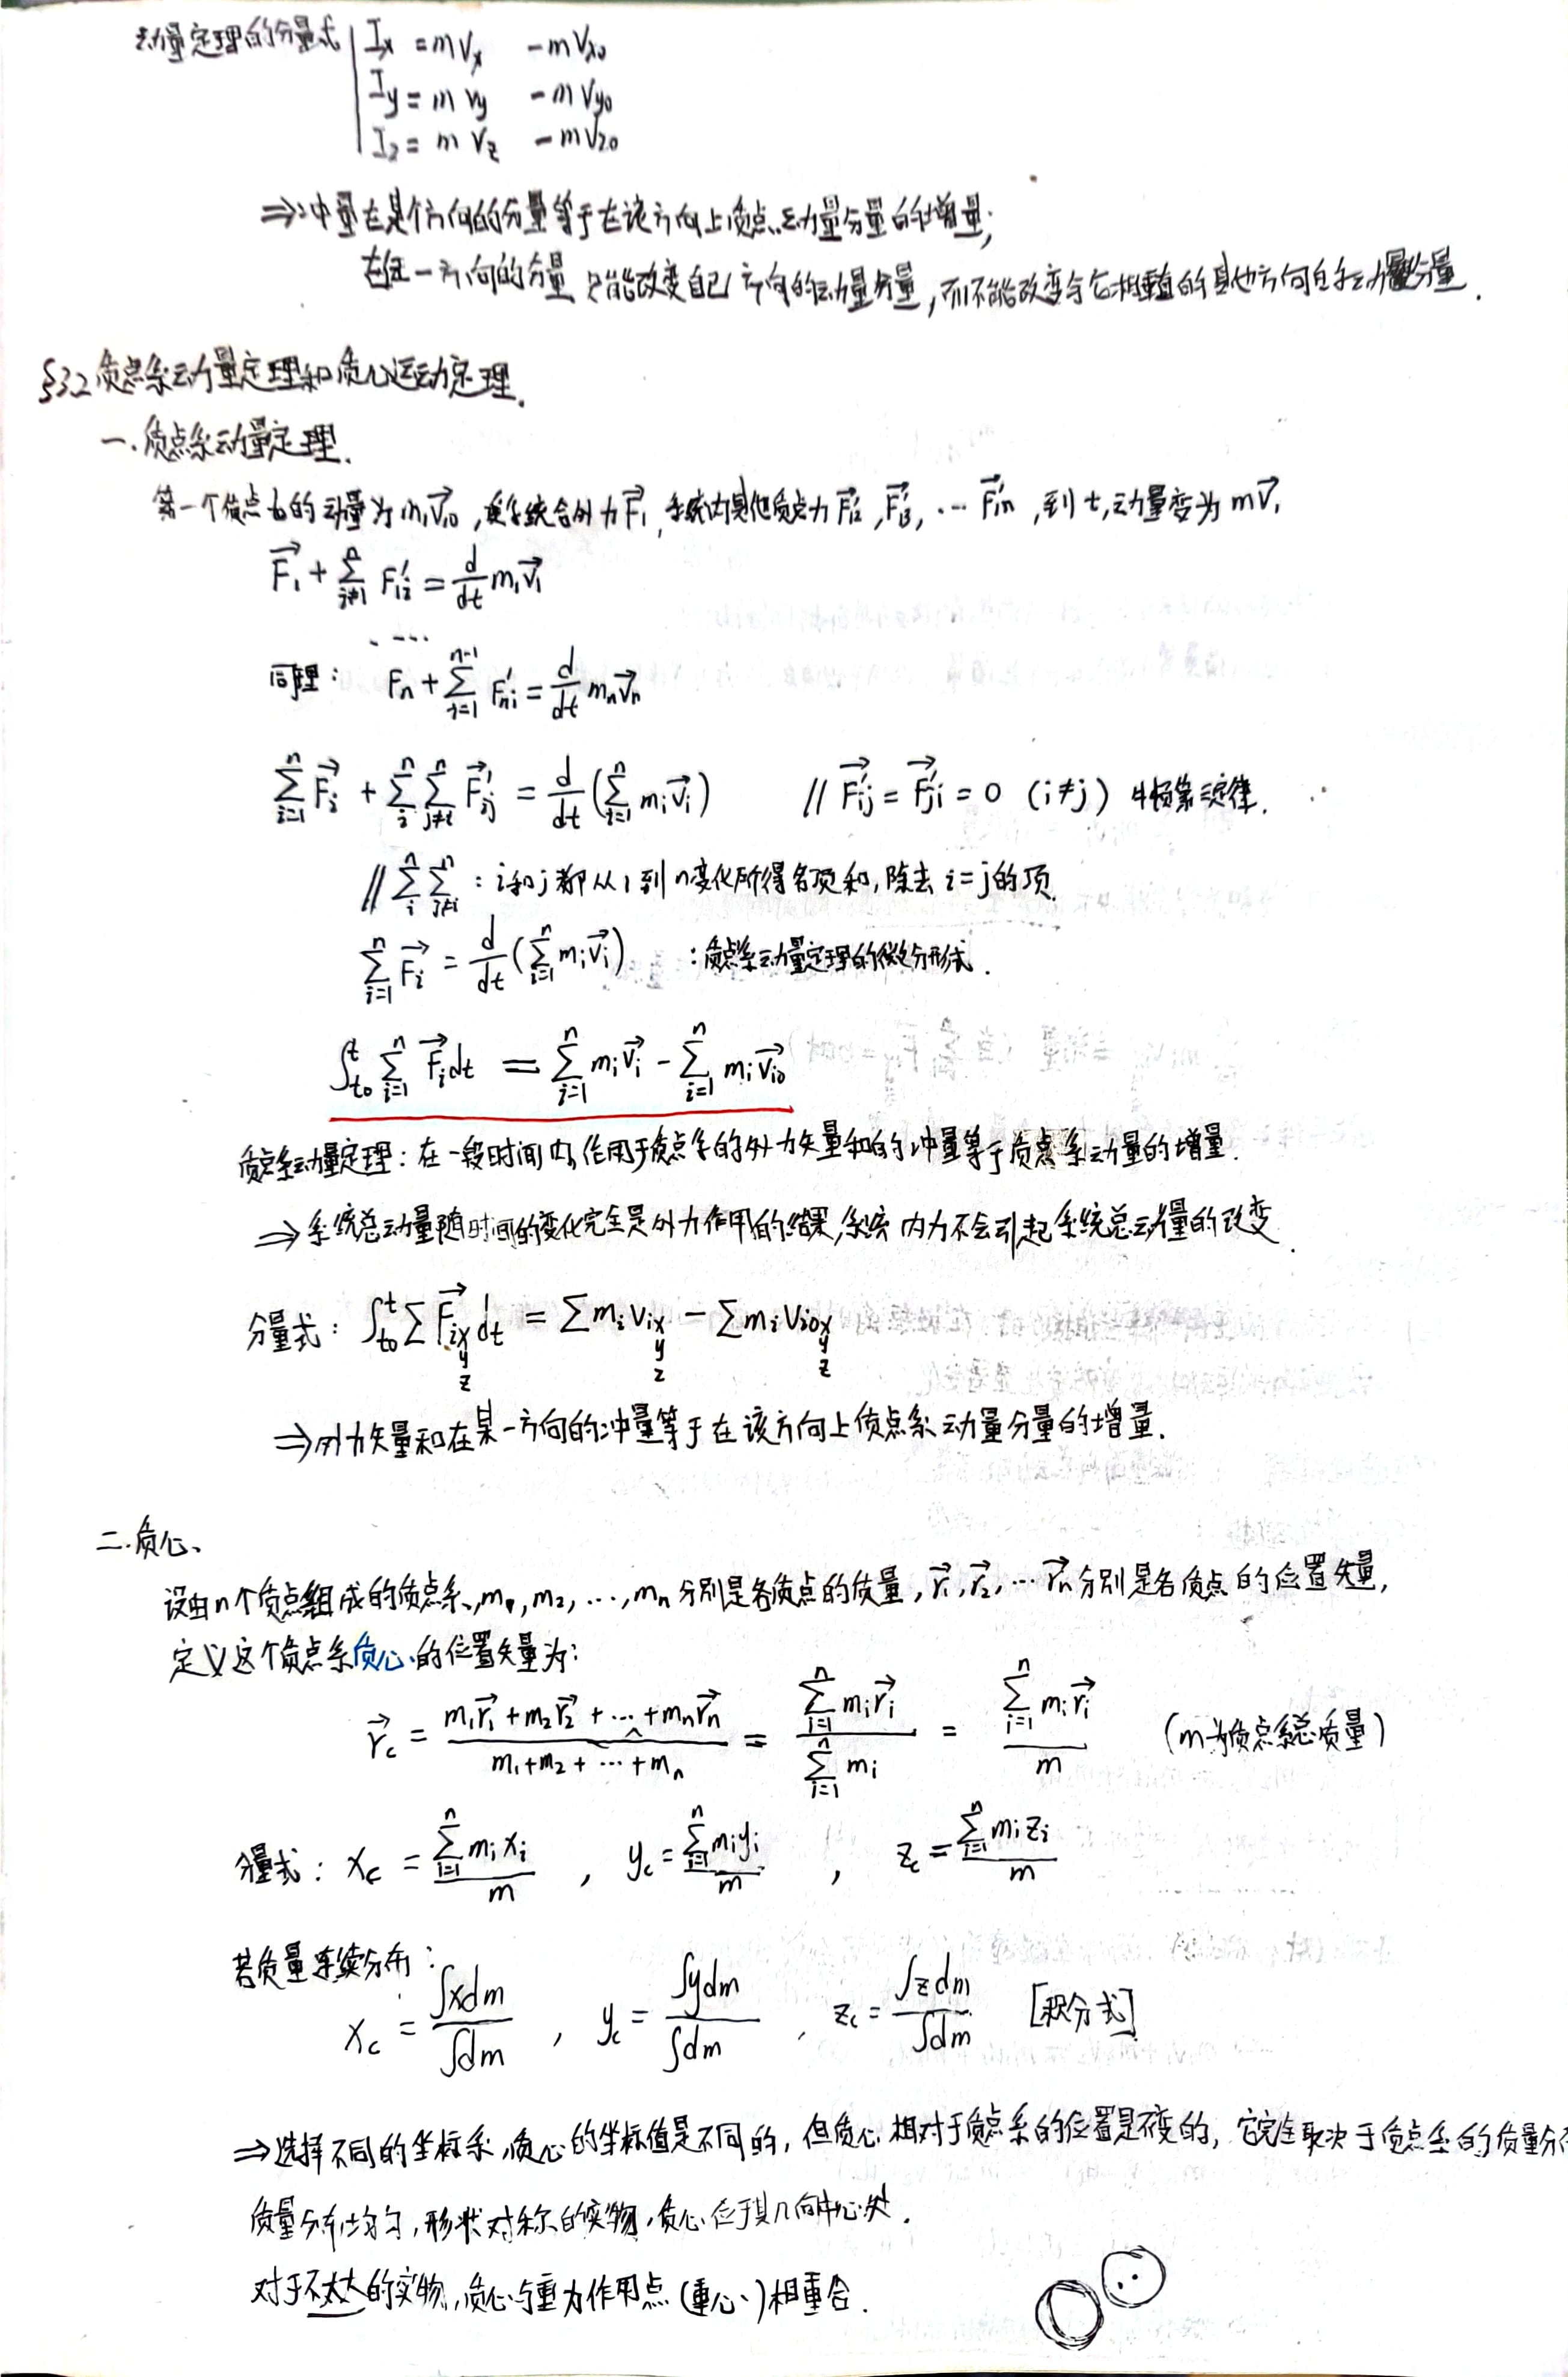 动量定理的分量式 Ix = mvx - mvx0
Iy = mvy - mvy0
Iz = mvz - mvz0
⇒冲量在某个方向的分量等于在该方向上质点动量分量的增量;
在任一方向的分量只能改变自己方向的动量分量,而不能改变与它相垂直的其他方向的动量分量.
§3.2 质点系动量定理和质心运动定理.
一.质点系动量定理.
第一个质点t₀的动量为m₁v⃗₁₀,受系统合外力F⃗₁,系统内其他质点力F⃗'₁₂,F⃗'₁₃,…F⃗'₁n,到t,动量变为mv⃗₁
F⃗₁ + ∑_{i≠1}^{n} F'₁ᵢ = d/dt m₁v⃗₁
....
同理: Fn + ∑_{i=1}^{n-1} F'ni = d/dt mnv⃗n
∑_{i=1}^{n} F⃗i + ∑_{i}^{n}∑_{j≠i}^{n} F⃗'ij = d/dt(∑_{i=1}^{n} miv⃗i) // F⃗'ij = F⃗'ji = 0 (i≠j) 牛顿第三定律.
// ∑_{i}^{n}∑_{j≠i}^{n} : i和j都从1到n变化所得各项和,除去i=j的项.
∑_{i=1}^{n} F⃗i = d/dt(∑_{i=1}^{n} miv⃗i) :质点系动量定理的微分形式.
∫_{t0}^{t} ∑_{i=1}^{n} F⃗i dt = ∑_{i=1}^{n} miv⃗i - ∑_{i=1}^{n} miv⃗i0
质点系动量定理:在一段时间内,作用于质点系的外力矢量和的冲量等于质点系动量的增量.
⇒系统总动量随时间的变化完全是外力作用的结果,系统内力不会引起系统总动量的改变.
分量式: ∫_{t0}^{t} ∑F⃗ix dt = ∑mivix - ∑mivi0x
y y y
z z z
⇒外力矢量和在某一方向的冲量等于在该方向上质点系动量分量的增量.
二.质心、
设由n个质点组成的质点系,m₁,m₂,…,mn分别是各质点的质量,r⃗₁,r⃗₂,…r⃗n分别是各质点的位置矢量,
定义这个质点系质心的位置矢量为:
r⃗c = (m₁r⃗₁+m₂r⃗₂+…+mnr⃗n)/(m₁+m₂+…+mn) = ∑_{i=1}^{n} mir⃗i / ∑_{i=1}^{n} mi = ∑_{i=1}^{n} mir⃗i / m (m为质点系总质量)
分量式: xc = ∑_{i=1}^{n} mixi / m , yc = ∑_{i=1}^{n} miyi / m , zc = ∑_{i=1}^{n} mizi / m
若质量连续分布:
xc = ∫xdm/∫dm , yc = ∫ydm/∫dm , zc = ∫zdm/∫dm [积分式]
⇒选择不同的坐标系,质心的坐标值是不同的,但质心相对于质点系的位置是不变的,它完全取决于质点系的质量分布
质量分布均匀,形状对称的实物,质心位于其几何中心处.
对于不太大的实物,质心与重力作用点(重心)相重合.